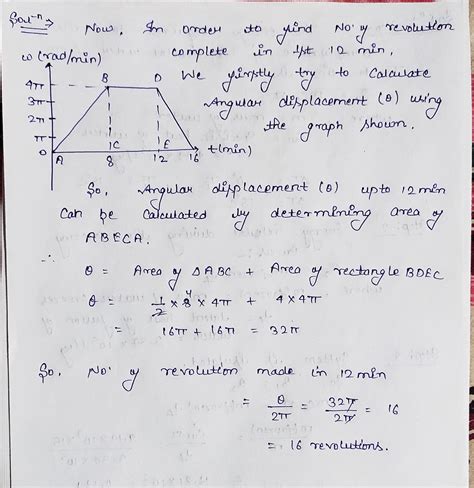 Solⁿ⇒ Now, In order to find No' of revolution
ω (rad/min) complete in 1st 12 min,
We firstly try to Calculate
Angular displacement (θ) using
the graph shown.
4π
3π
2π
π
0
B D
A C E
8 12 16 t(min)
So, Angular displacement (θ) upto 12 min
Can be Calculated by determining area of
ABECA.
θ = Area of ΔABC + Area of rectangle BDEC
θ = 1/2 × 8 4 × 4π + 4 × 4π
= 16π + 16π = 32π
So, No' of revolution made in 12 min
= θ/2π = 32π/2π = 16
= 16 revolutions.